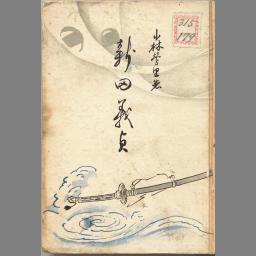 小林鶯里著
新田義貞
315
179